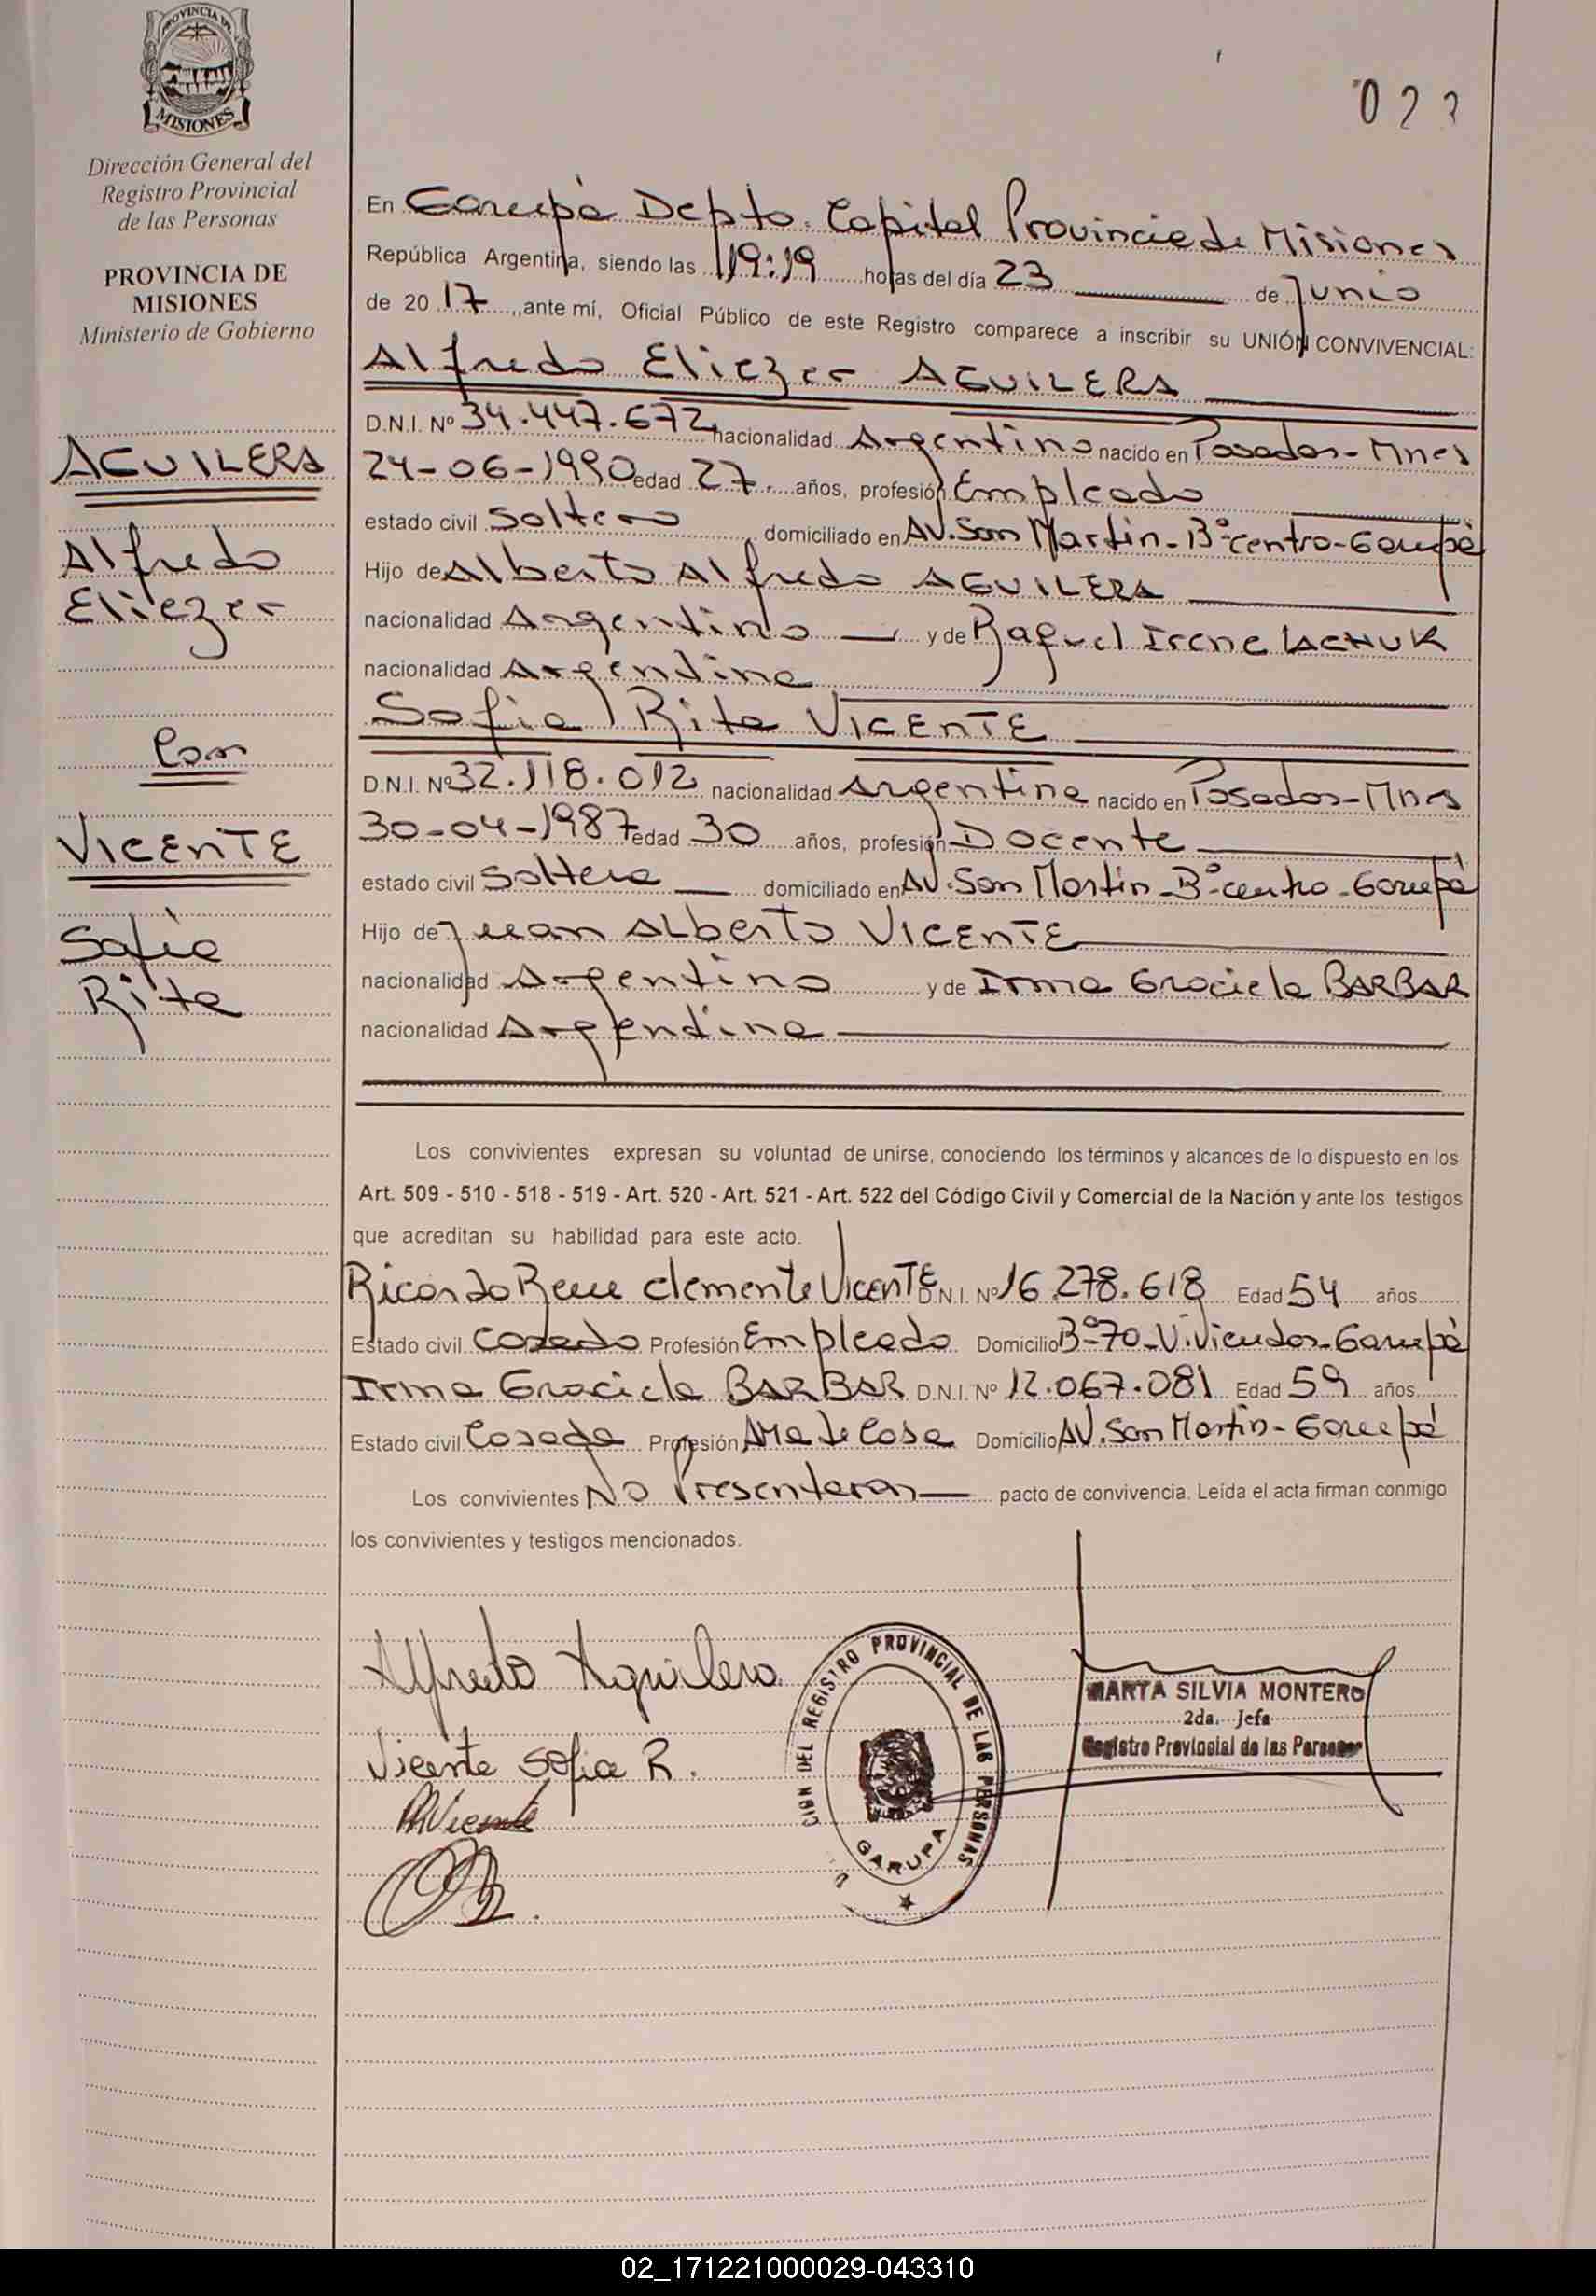 PROVINCIA DE
MISIONES
Dirección General del
Registro Provincial
de las Personas
PROVINCIA DE
MISIONES
Ministerio de Gobierno
AGUILERA
Alfredo
Eliezer
Con
VICENTE
Sofia
Rita
02
En Garupá Depto. Capital Provincia de Misiones
República Argentina, siendo las 19:19 horas del día 23 de Junio
de 2017, ante mí, Oficial Público de este Registro comparece a inscribir su UNIÓN CONVIVENCIAL:
Alfredo Eliezer AGUILERA
D.N.I. Nº 34.447.672 nacionalidad Argentino nacido en Posadas-Mnes
24-06-1990 edad 27 años, profesión Empleado
estado civil Soltero domiciliado en AV. San Martin-Bº centro-Garupá
Hijo de Alberto Alfredo AGUILERA
nacionalidad Argentino y de Raquel Irene LACHUK
nacionalidad Argentina
Sofia Rita VICENTE
D.N.I. Nº 32.118.012 nacionalidad Argentina nacido en Posadas-Mnes
30-04-1987 edad 30 años, profesión Docente
estado civil Soltera domiciliado en AV. San Martin-Bº centro-Garupá
Hijo de Juan ALberto VICENTE
nacionalidad Argentino y de Irma Graciela BARBAR
nacionalidad Argentina
Los convivientes expresan su voluntad de unirse, conociendo los términos y alcances de lo dispuesto en los
Art. 509 - 510 - 518 - 519 - Art. 520 - Art. 521 - Art. 522 del Código Civil y Comercial de la Nación y ante los testigos
que acreditan su habilidad para este acto.
Ricardo Rene Clemente VICENTE D.N.I. Nº 16.278.618 Edad 54 años
Estado civil Casado Profesión Empleado Domicilio Bº 70-Viviendas-Garupá
Irma Graciela BARBAR D.N.I. Nº 12.067.081 Edad 59 años
Estado civil Casada Profesión Ama de Casa Domicilio AV. San Martin-Garupá
Los convivientes No Presentaron pacto de convivencia. Leída el acta firman conmigo
los convivientes y testigos mencionados.
Alfredo Aguilera
Vicente Sofia R.
Vicente
CION DEL REGISTRO PROVINCIAL DE LAS PERSONAS
GARUPA
MARTA SILVIA MONTERO
2da. Jefa
Registro Provincial de las Personas
02_171221000029-043310